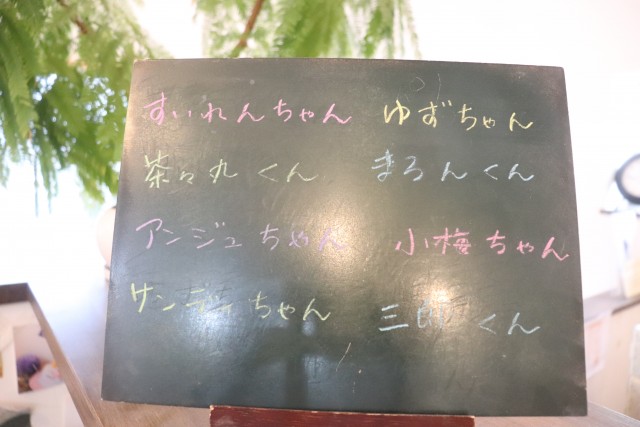 すいれんちゃん ゆずちゃん
茶々丸くん まろんくん
アンジュちゃん 小梅ちゃん
サンディちゃん 三郎くん